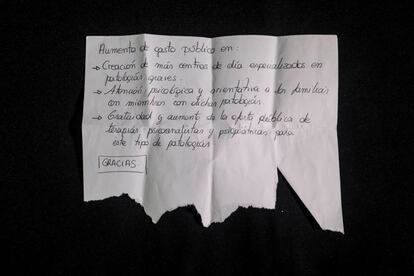 Aumento de gasto público en:
→ Creación de más centros de día especializados en
patologías graves.
→ Atención psicológica y orientativa a las familias
con miembros con dichas patologías.
→ Gratuidad y aumento de la oferta pública de
terapias psicoanalistas y psiquiátricas para
este tipo de patologías.
GRACIAS.